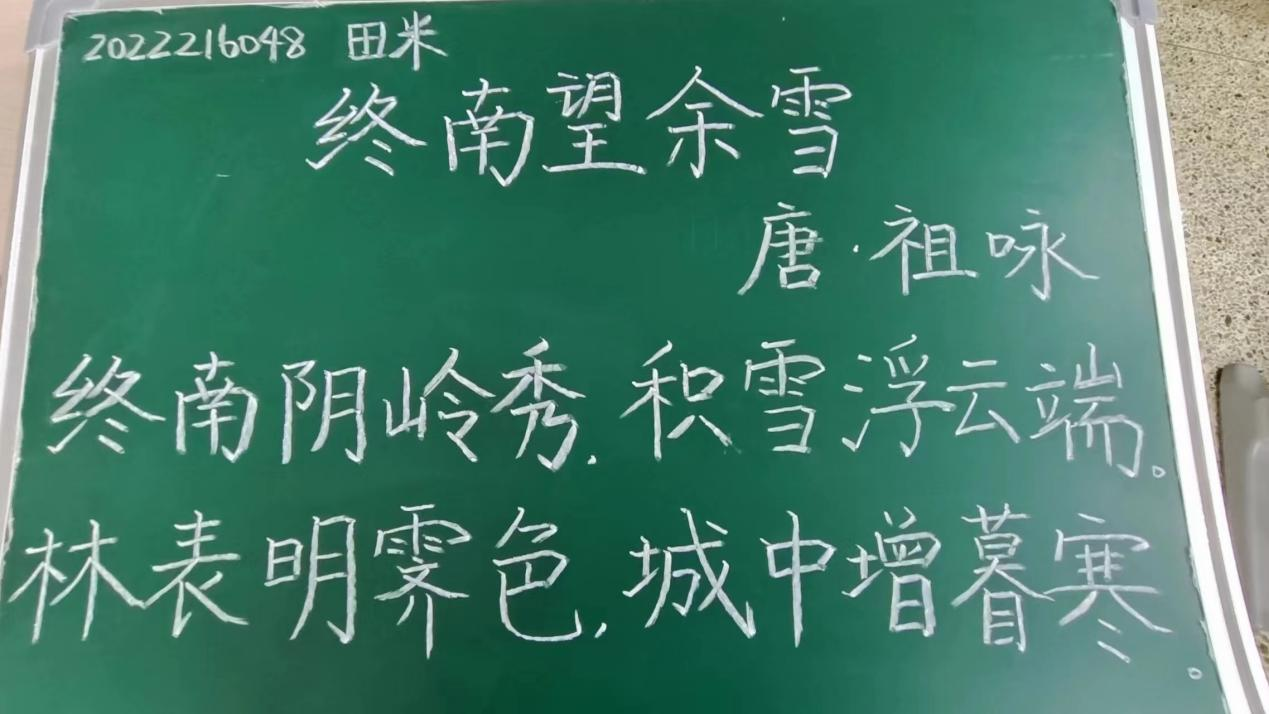 2022216048 田米
终南望余雪
唐·祖咏
终南阴岭秀,积雪浮云端。
林表明霁色,城中增暮寒。